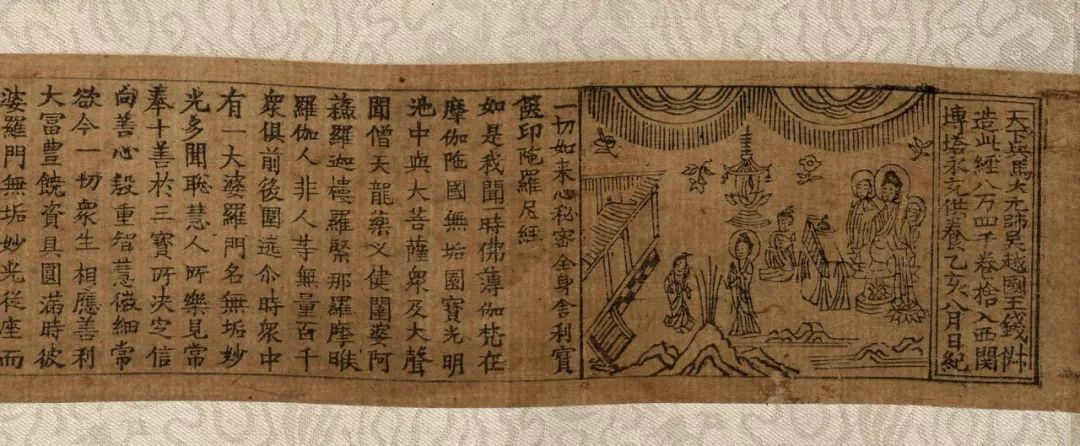 天下兵馬大元帥吳越國王錢俶
造此經八万四千卷捨入西関
塼塔永充供養乙亥八月日紀
一切如來心秘密全身舍利寶
篋印陁羅尼經
如是我聞一時佛薄伽梵在
摩伽陁國無垢園寶光明
池中與大菩薩衆及大聲
聞僧天龍藥叉健闥婆阿
蘓羅迦樓羅緊那羅摩睺
羅伽人非人等無量百千
衆俱前後圍遶尒時衆中
有一大婆羅門名無垢妙
光多聞聦慧人所樂見常
奉十善於三寶所决定信
向善心殷重智慧微細常
欲令一切衆生相應善利
大富豊饒資具圓滿時彼
婆羅門無垢妙光從座而